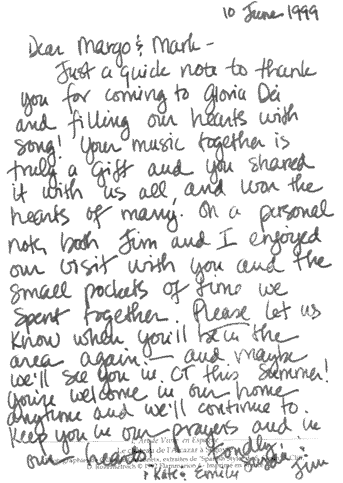 10 June 1999
Dear Margo & Mark -
Just a quick note to thank
you for coming to Gloria Dei
and filling our hearts with
song! Your music together is
truly a gift and you shared
it with us all, and won the
hearts of many. On a personal
note, both Jim and I enjoyed
our visit with you and the
small pockets of time we
spent together. Please let us
know when you'll be in the
area again — and maybe
we'll see you in CT this summer!
You're welcome in our home
anytime and we'll continue to
keep you in our prayers and in
our hearts. Fondly,
Jim
& Kate & Emily